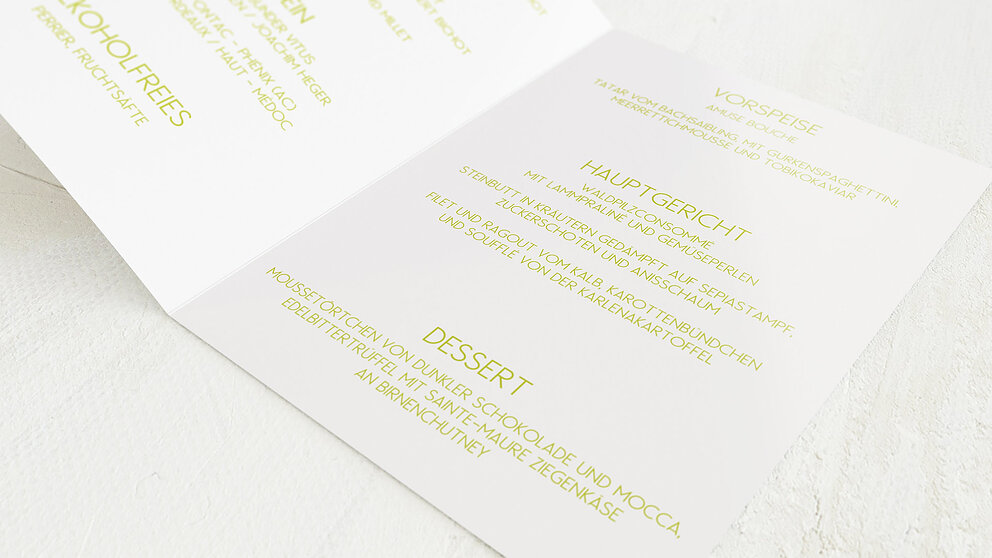 BICHOT
MILLET
EIN
UNDER VITUS
EN / JOACHIM HEGER
ONTAC - PHENIX (AC)
RDEAUX / HAUT - MEDOC
LKOHOLFREIES
PERRIER, FRUCHTSÄFTE
VORSPEISE
AMUSE BOUCHE
TATAR VOM BACHSAIBLING, MIT GURKENSPAGHETTINI,
MEERRETTICHMOUSSE UND TOBIKOKAVIAR
HAUPTGERICHT
WALDPILZCONSOMME
MIT LAMMPRALINE UND GEMÜSEPERLEN
STEINBUTT IN KRÄUTERN GEDÄMPFT AUF SEPIASTAMPF,
ZUCKERSCHOTEN UND ANISSCHAUM
FILET UND RAGOUT VOM KALB, KAROTTENBÜNDCHEN
UND SOUFFLÉ VON DER KARLENAKARTOFFEL
DESSERT
MOUSSETÖRTCHEN VON DUNKLER SCHOKOLADE UND MOCCA,
EDELBITTERTRÜFFEL MIT SAINTE-MAURE ZIEGENKÄSE
AN BIRNENCHUTNEY